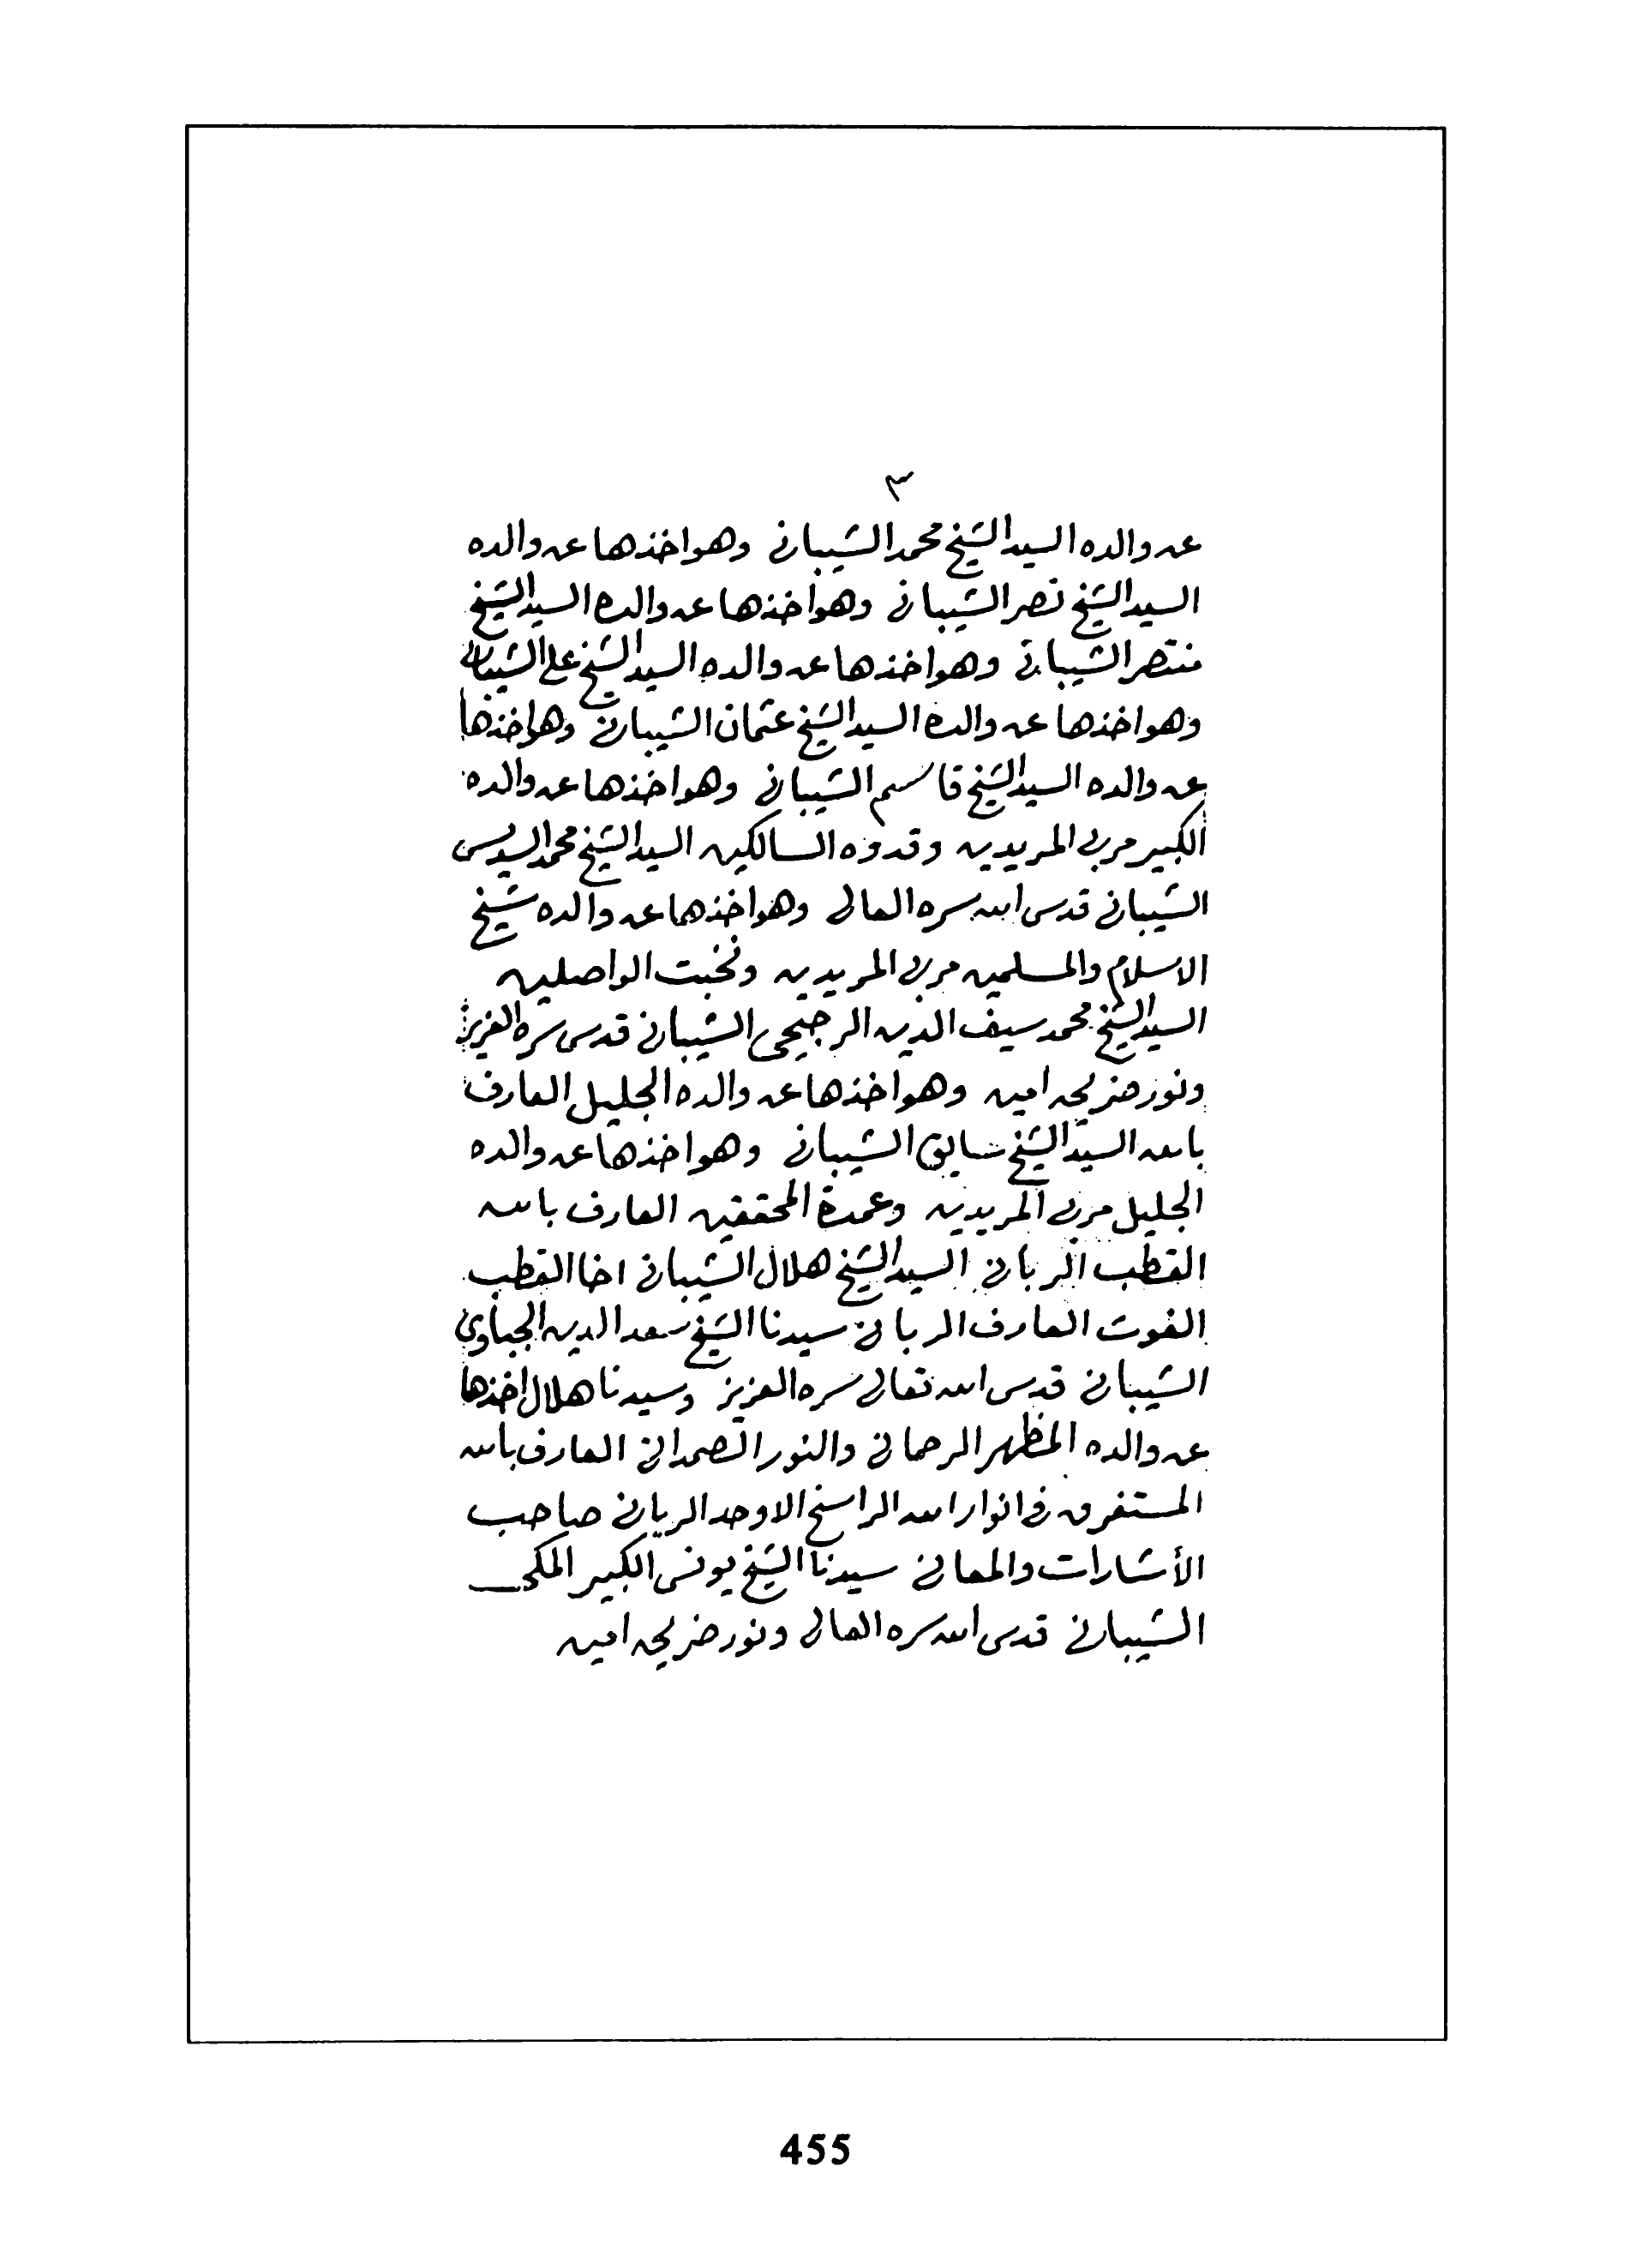 ٣
عن والده السيد الشيخ محمد الشيباني وهو اخذها عن والده
السيد الشيخ نصر الشيباني وهو اخذها عن والده السيد الشيخ
منتصر الشيباني وهو اخذها عن والده السيد الشيخ علي الشيباني
وهو اخذها عن والده السيد الشيخ عثمان الشيباني وهو اخذها
عن والده السيد الشيخ قاسم الشيباني وهو اخذها عن والده
الكبير مربي المريدين وقدوه السالكين السيد الشيخ محمد
الشيباني قدس الله سره العالي وهو اخذها عن والده شيخ
الاسلام والمسلمين مربي المريدين ونخبت الواصلين
السيد الشيخ محمد سيف الدين الرجيحي الشيباني قدس سره العزيز
ونور ضريحه امين وهو اخذها عن والده الجليل العارف
بالله السيد الشيخ سابق الشيباني وهو اخذها عن والده
الجليل مربي المريدين وعمدة المحققين العارف بالله
القطب الرباني السيد الشيخ هلال الشيباني اخا القطب
الغوث العارف الرباني سيدنا الشيخ سعد الدين الجباوي
الشيباني قدس الله تعالى سره العزيز وسيدنا هلال اخذها
عن والده المظهر الرحماني والنور الصمداني العارف بالله
المستغرق في انوار الله الراسخ الاوحد الرباني صاحب
الأشارات والمعاني سيدنا الشيخ يونس الكبير المكي
الشيباني قدس الله سره العالي ونور ضريحه امين
455